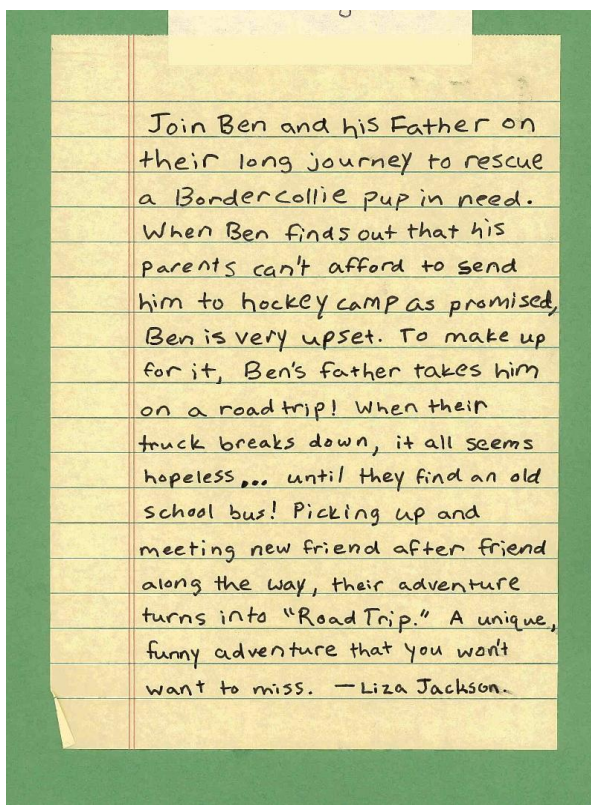 Join Ben and his Father on
their long journey to rescue
a Bordercollie pup in need.
When Ben finds out that his
parents can't afford to send
him to hockey camp as promised,
Ben is very upset. To make up
for it, Ben's father takes him
on a road trip! When their
truck breaks down, it all seems
hopeless... until they find an old
school bus! Picking up and
meeting new friend after friend
along the way, their adventure
turns into "Road Trip." A unique,
funny adventure that you won't
want to miss. —Liza Jackson.